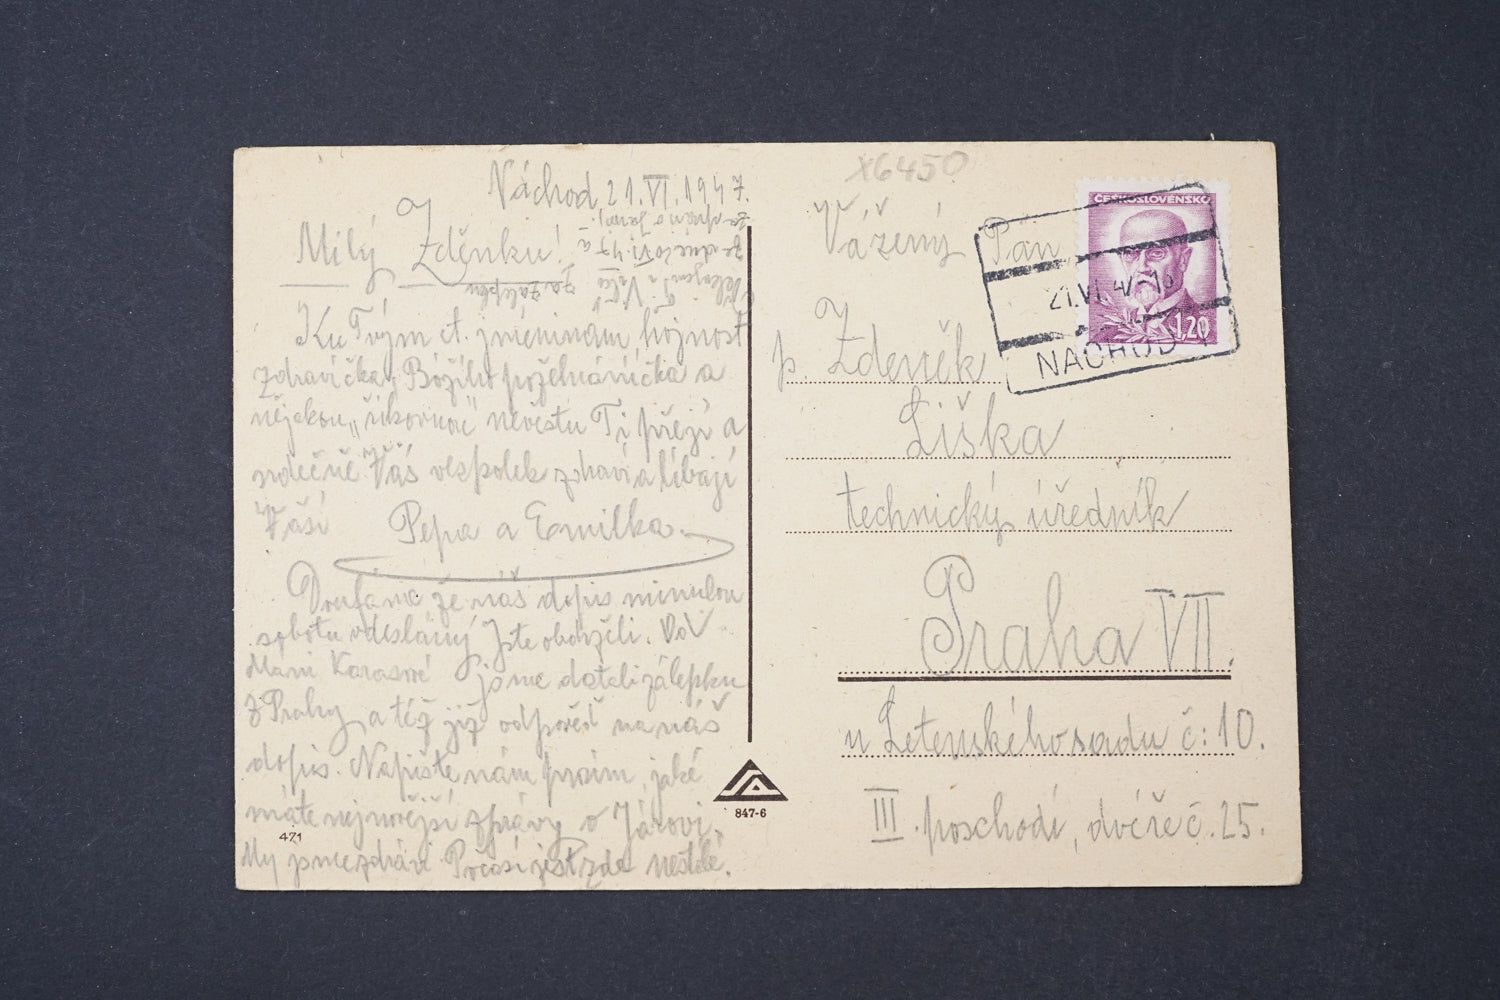 Náchod 21.VI.1947.
Milý Zděnku!
Ku Tvým ct. jmeninám hojnost
zdravíčka, Božího požehnáníčka a
nějakou „šikovnou" nevěstu Ti přejí a
srdečně Vás vespolek zdraví a líbají
Vaši Pepa a Emilka.
Doufáme že náš dopis minulou
sobotu odeslaný jste obdrželi. Od
Mani Karasové jsme dostali zálepku
z Prahy a též již odpověď na náš
dopis. Napište nám prosím, jaké
máte nejnovější zprávy o Járovi.
My jsme zdrávi Počasí jest zde nestálé.
za zálepku
ze dne 20/VI.47 a
za zprávu o Jarovi.
471
847-6
X6450
Vážený Pán
p. Zdeněk
Liška
technický úředník
Praha VII.
u Letenského sadu č: 10.
III. poschodí, dvéře č. 25.
ČESKOSLOVENSKO
1.20
21.VI.47-18
NÁCHOD 1